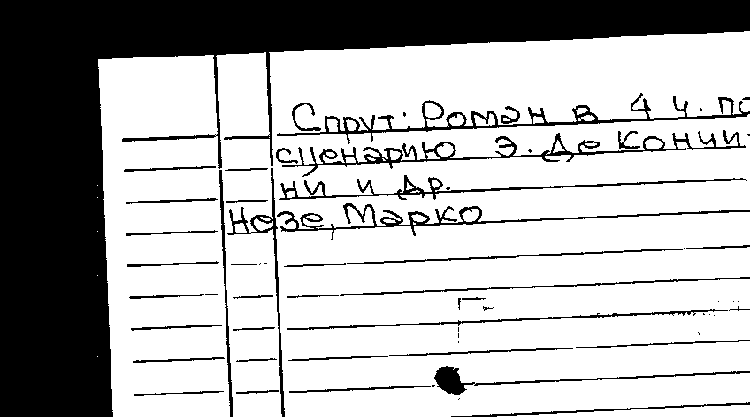 Спрут: Роман в 4 ч. по
сценарию Э. Де Кончи-
ни и др.
Незе, Марко